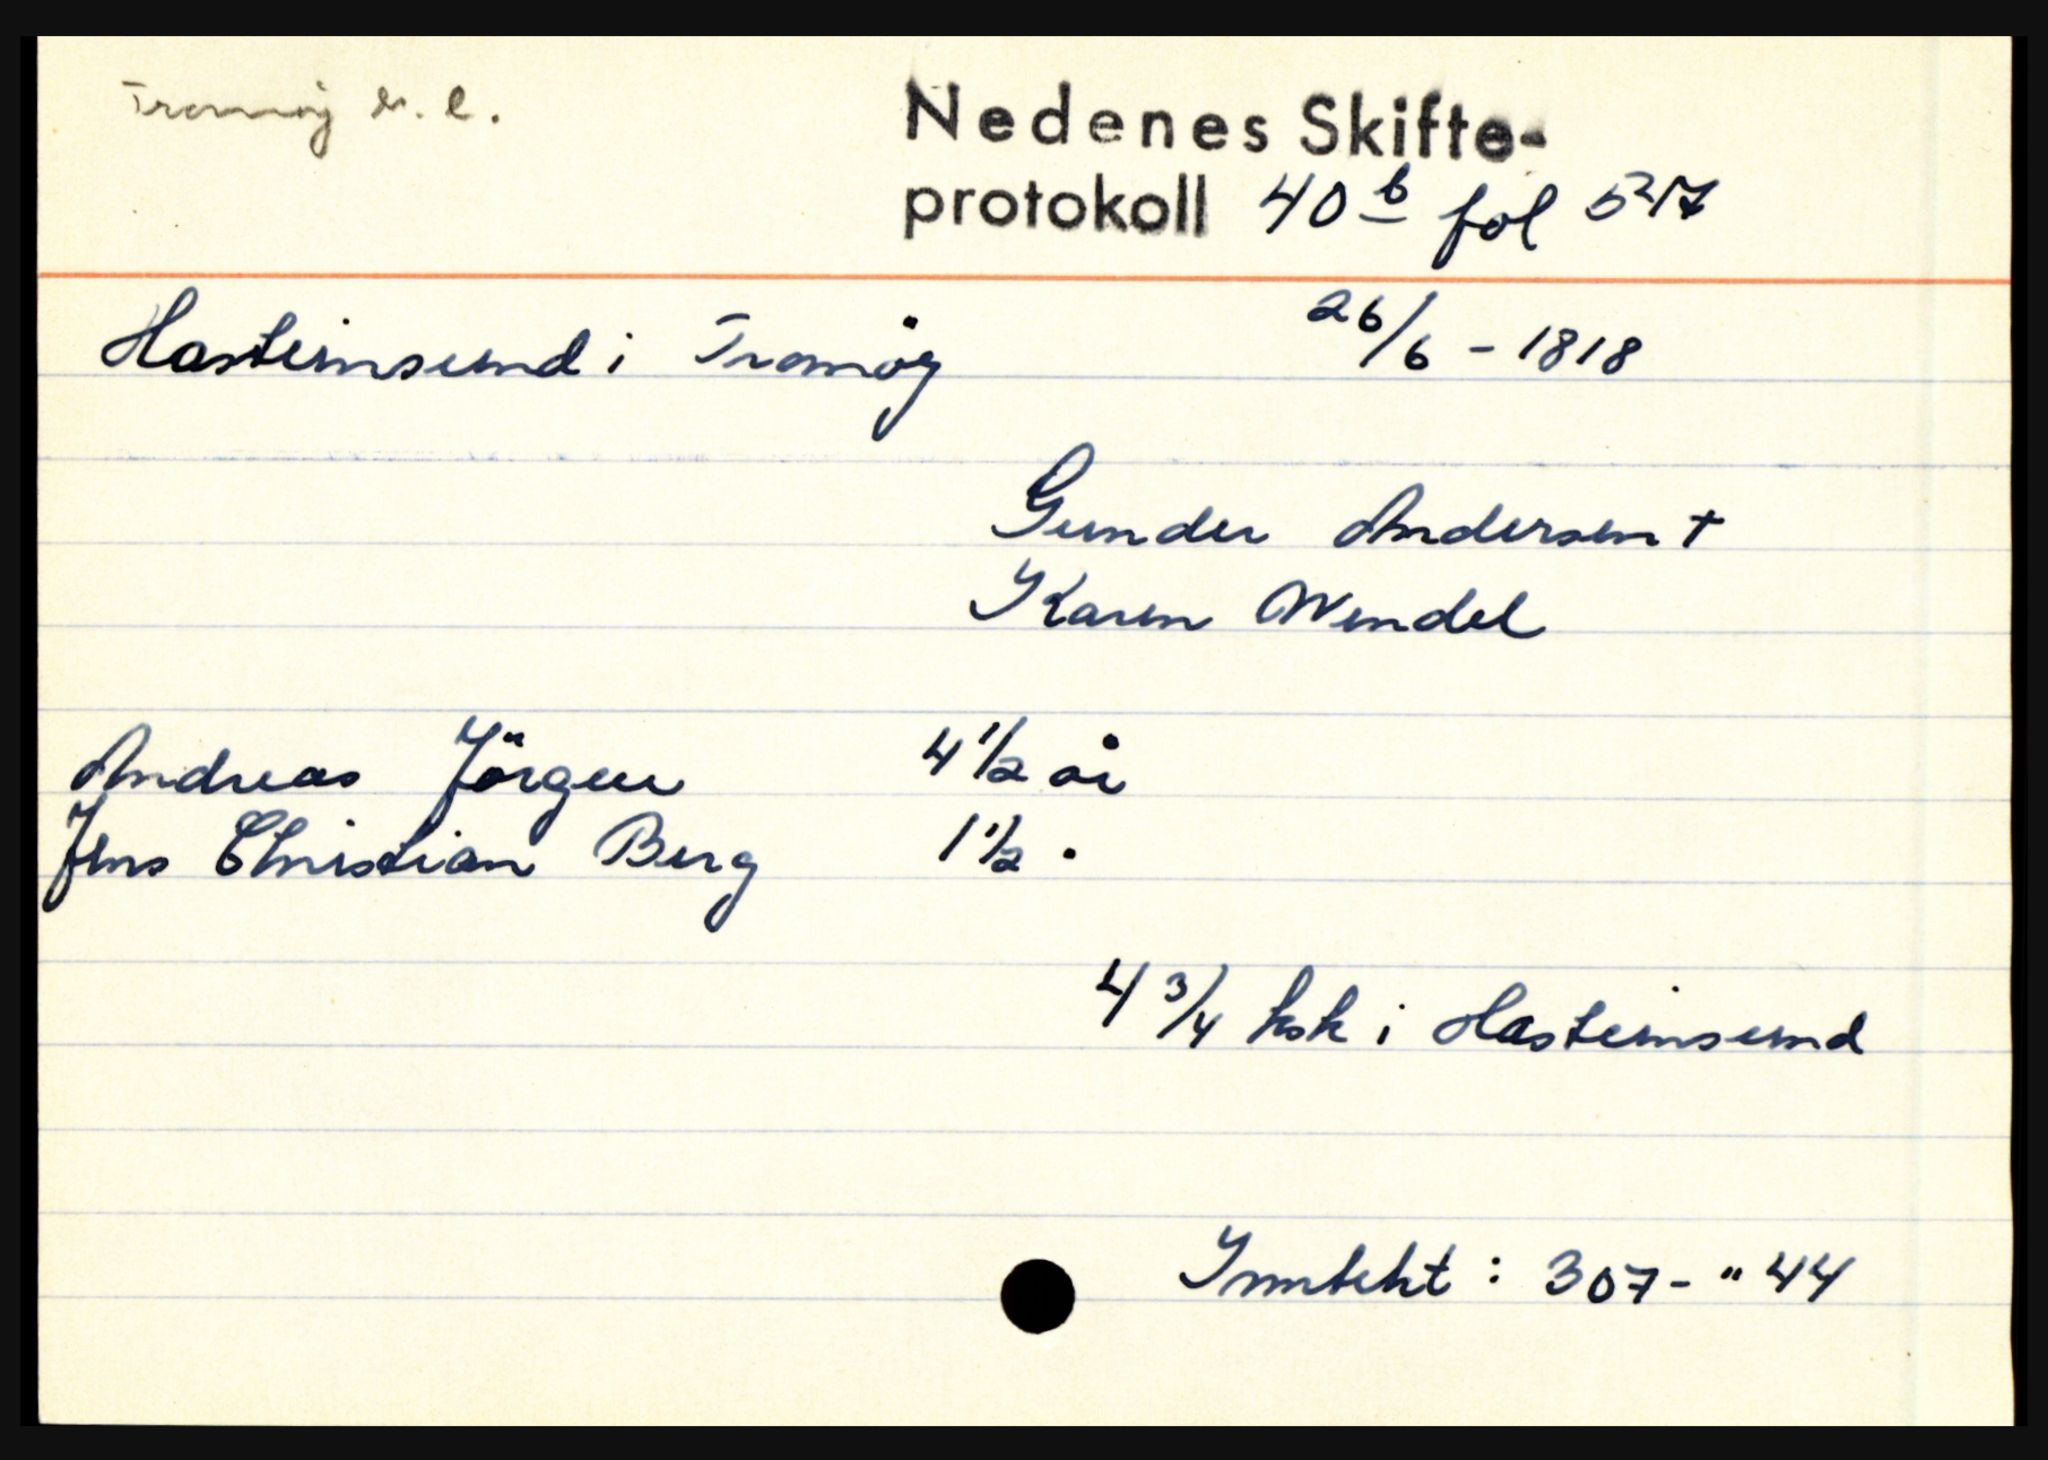 Tromöy s. l.
Nedenes Skifte-
protokoll 40 b fol 527
Hasteinsund i Tromöy 26/6 - 1818
Gunder Andersen +
Karen Wendel
Andreas Jörgen 4 1/2 år
Jens Christian Berg 1 1/2 .
4 3/4 ksk i Hasteinsund
Inntekt : 307 - " 44